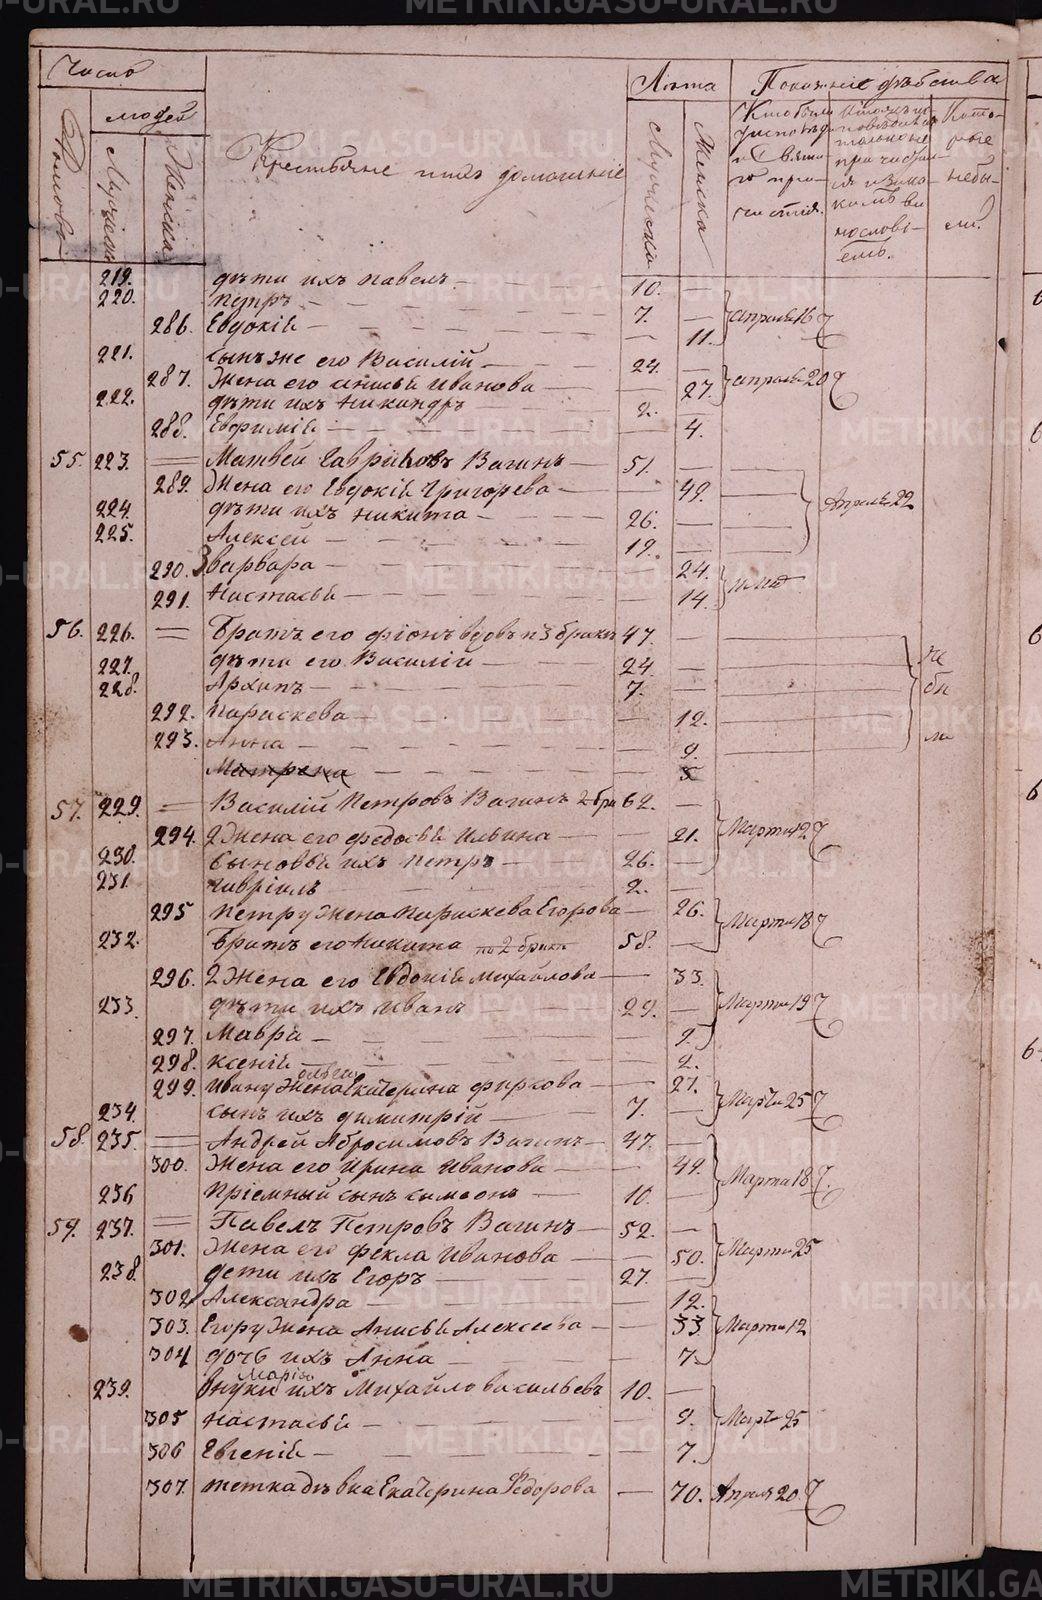 Число
Домовъ
людей
Мужеска
Женска
Крестьяне и ихъ домашніе
Лѣта
Мужеска
Женска
Показаніе дѣйства
Кто были у исповѣди и Святаго причастія.
Которые небыли.
219. дѣти ихъ Павелъ 10.
220. Петръ 7. —
286. Евдокія — 11. Апреля 16
221. сынъ же его Василій 24. —
287. Жена его Анисья Иванова — 27. Апреля 20
222. дѣти ихъ Никандръ 2.
288. Евфимія — 4.
55. 223. Матвей Гавриловъ Вагинъ 51. —
289. Жена его Евдокія Григорева — 49. Апреля 22
224. дѣти ихъ Никита 26. —
225. Алексей 19. —
290. Варвара 24.
291. Настасья 14.
56. 226. Братъ его Фіонъ вдовъ п 3 бракѣ 47. —
227. дѣти его Василій 24. — не
228. Архипъ 7. — бы
292. Параскева — 12. ли
293. Анна — 9.
Матрена 5
57. 229. Василій Петровъ Вагинъ 2 бра 62. —
294. 2 Жена его Федосья Ильина — 21. Марта 12
230. сыновья ихъ Петръ 26. —
231. Гавріилъ 2. —
295 Петру Жена Параскева Егорова — 26. Марта 18
232. Братъ его Никита по 2 бракѣ 58. —
296. 2 Жена его Евдокія Михайлова — 33.
233. дѣти ихъ Иванъ 29. — Марта 19
297. Мавра — 9.
298. Ксенія — 2.
Ольга
299. Ивану Жена Екатерина Фирсова — 27. Марта 25
234. сынъ ихъ Димитрій 7. —
58. 235. Андрей Абросимовъ Вагинъ 47. —
300. Жена его Ирина Иванова — 49. Марта 18
236 Пріемный сынъ Симеонъ 10. —
59. 237. Павелъ Петровъ Вагинъ 52. —
301. Жена его Фекла Иванова — 50. Марта 25
238. дети ихъ Егоръ 27. —
302 Александра — 12.
303. Егору Жена Анисья Алексеева — 33. Марта 12
304 дочь ихъ Анна — 7.
Марія
239. внуки ихъ Михайло Васильевъ 10. —
305 Настасья — 9. Марта 25
306 Евгенія — 7.
307. тетка дѣвка Екатерина Федорова — 70. Апреля 20.
METRIKI.GASO-URAL.RU